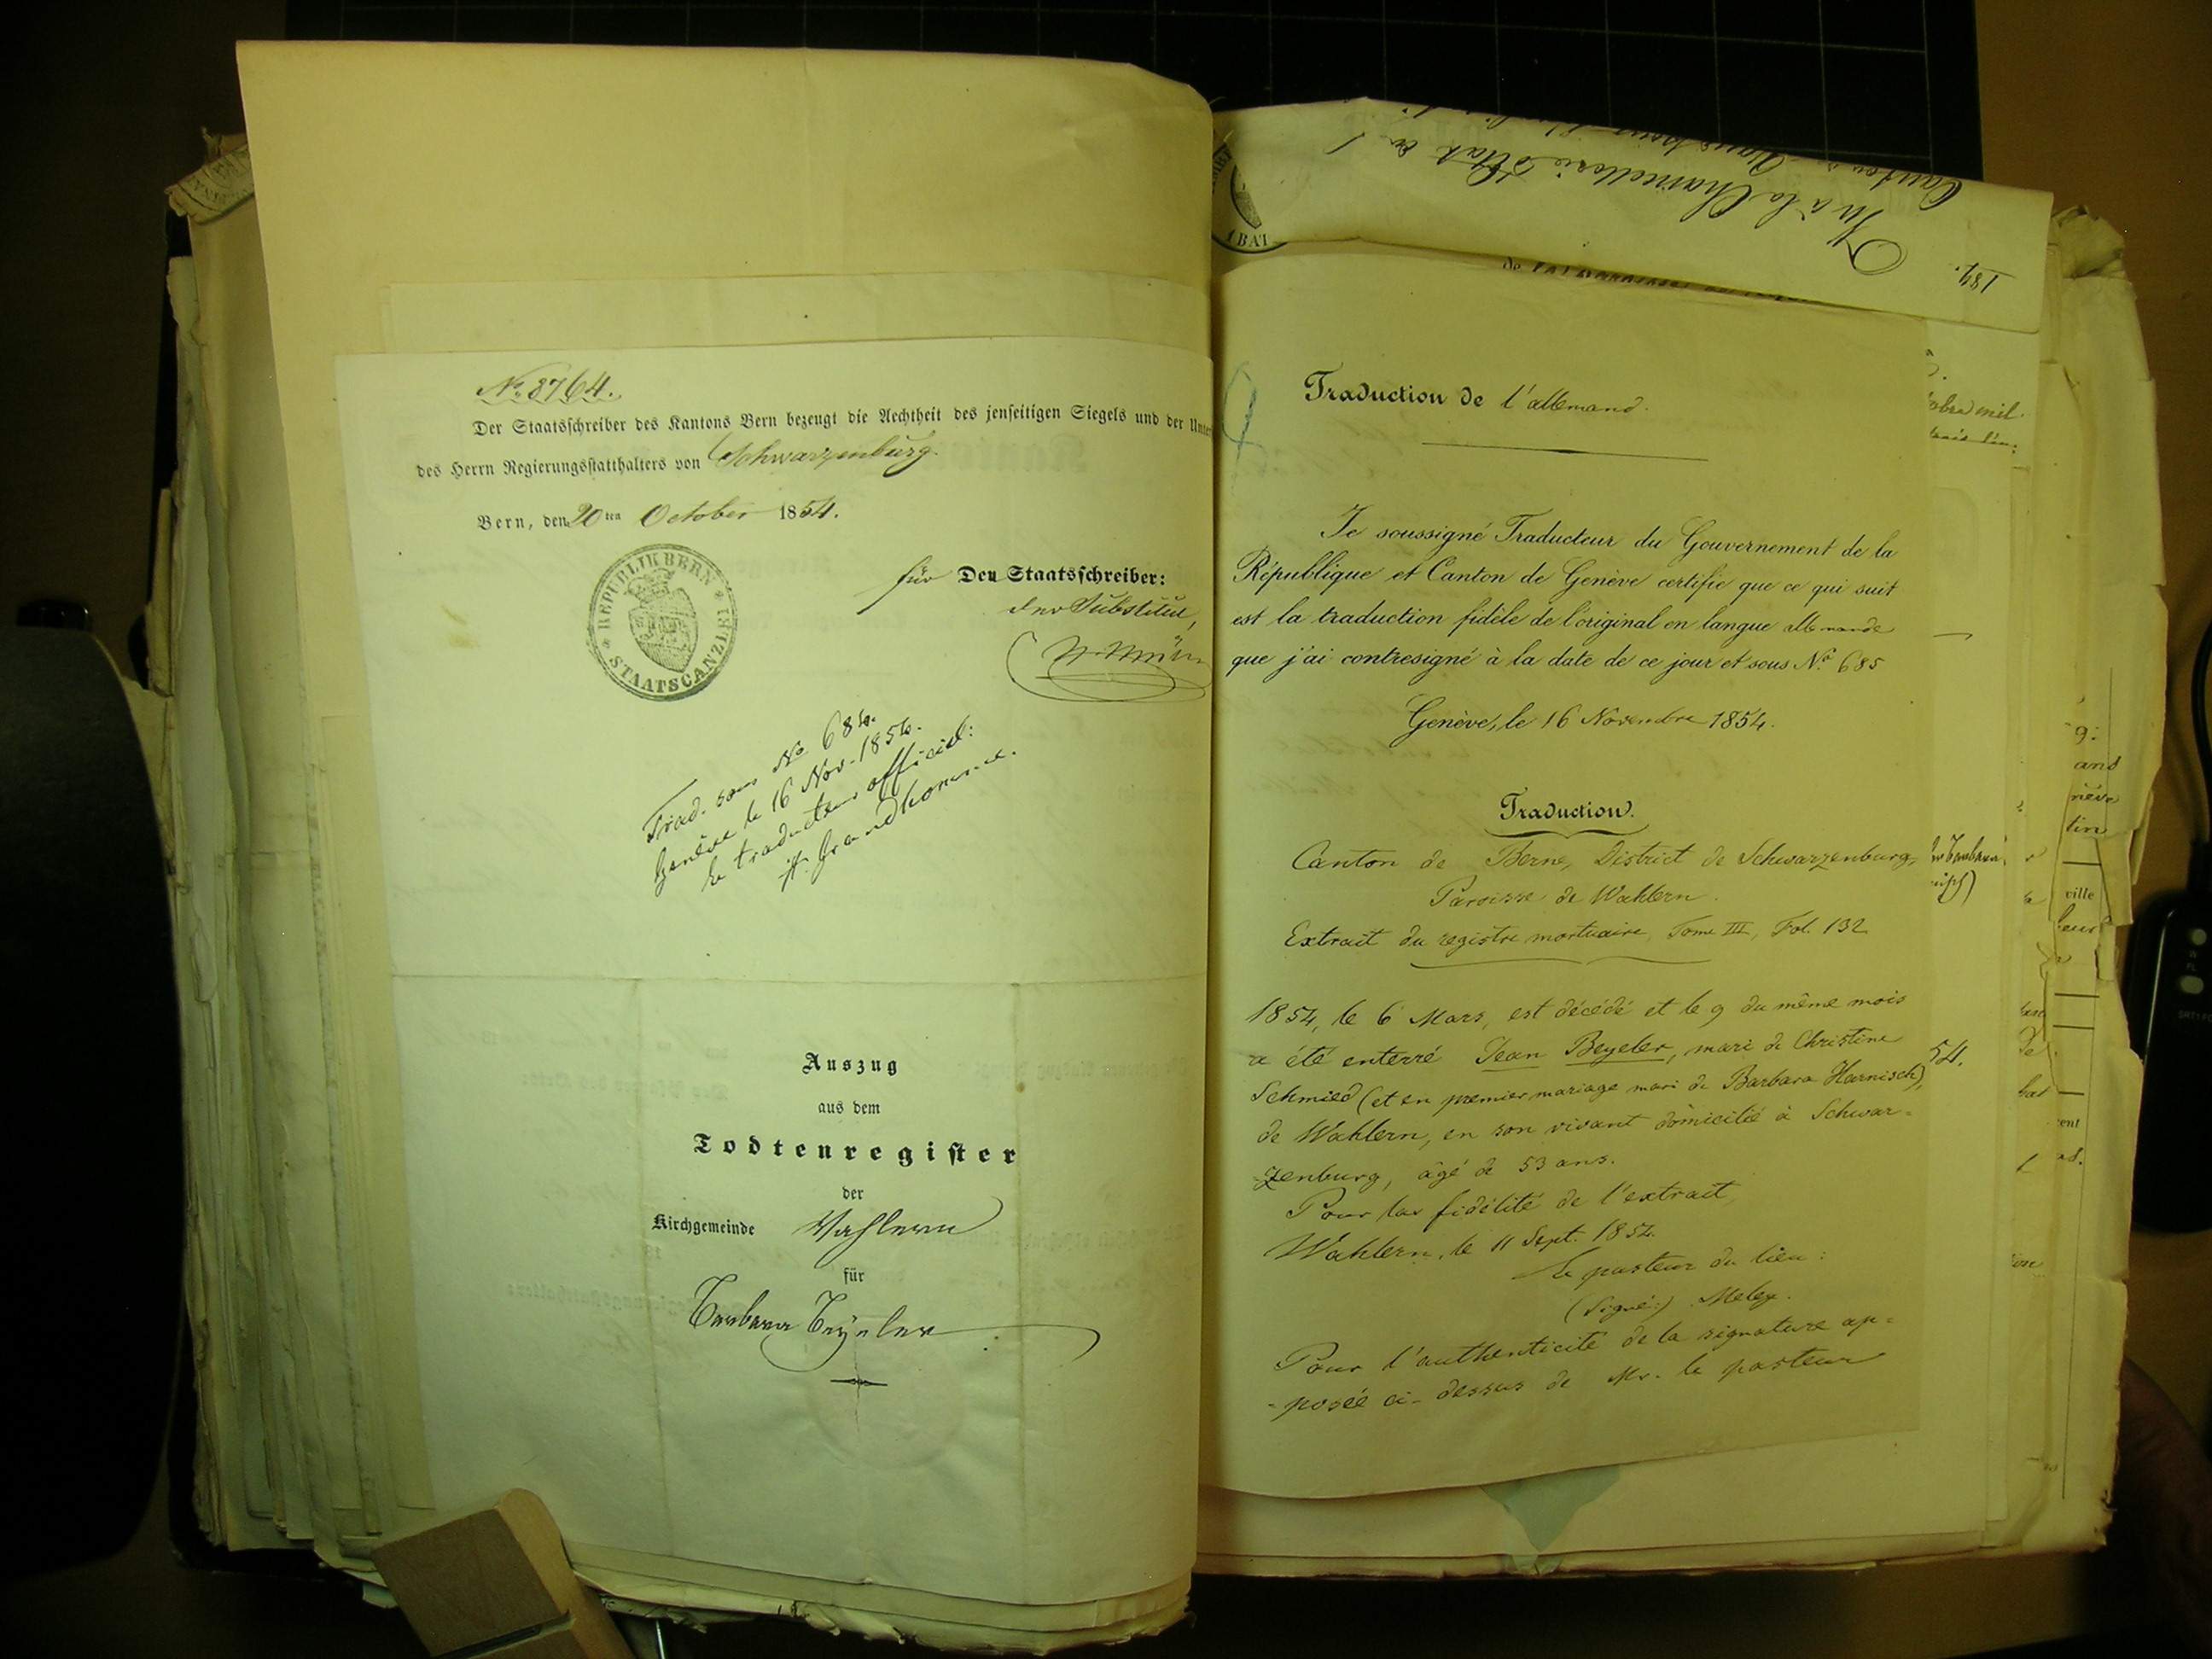 No 8764.
Der Staatsschreiber des Kantons Bern bezeugt die Aechtheit des jenseitigen Siegels und der
des Herrn Regierungsstatthalters von Schwarzenburg.
Bern, den 20ten October 1854.
REPUBLIK BERN
STAATSCANZLEI
für Den Staatsschreiber:
der Substitut,
Trad. sous No 684.
Genève le 16 Nov. 1854.
le traducteur officiel:
H. Grandhomme.
Auszug
aus dem
Todtenregister
der
Kirchgemeinde Wahlern
für
Barbara Beyeler
Vu à la Chancellerie d'Etat
184
1 BAT
Traduction de l'allemand.
Je soussigné Traducteur du Gouvernement de la
République et Canton de Genève certifie que ce qui suit
est la traduction fidèle de l'original en langue allemande
que j'ai contresigné à la date de ce jour et sous No 685
Genève, le 16 Novembre 1854.
Traduction.
Canton de Berne, District de Schwarzenburg,
Paroisse de Wahlern.
Extrait du registre mortuaire, Tome III, Fol. 132
1854, le 6 Mars, est décédé et le 9 du même mois
a été enterré Jean Beyeler, mari de Christine
Schmied (et en premier mariage mari de Barbara Harnisch),
de Wahlern, en son vivant domicilié à Schwar=
zenburg, âgé de 53 ans.
Pour la fidélité de l'extrait,
Wahlern, le 11 Sept. 1854.
Le pasteur du lieu:
(Signé:)
Pour l'authenticité de la signature ap=
=posée ci-dessus de Mr. le pasteur
54.
ville